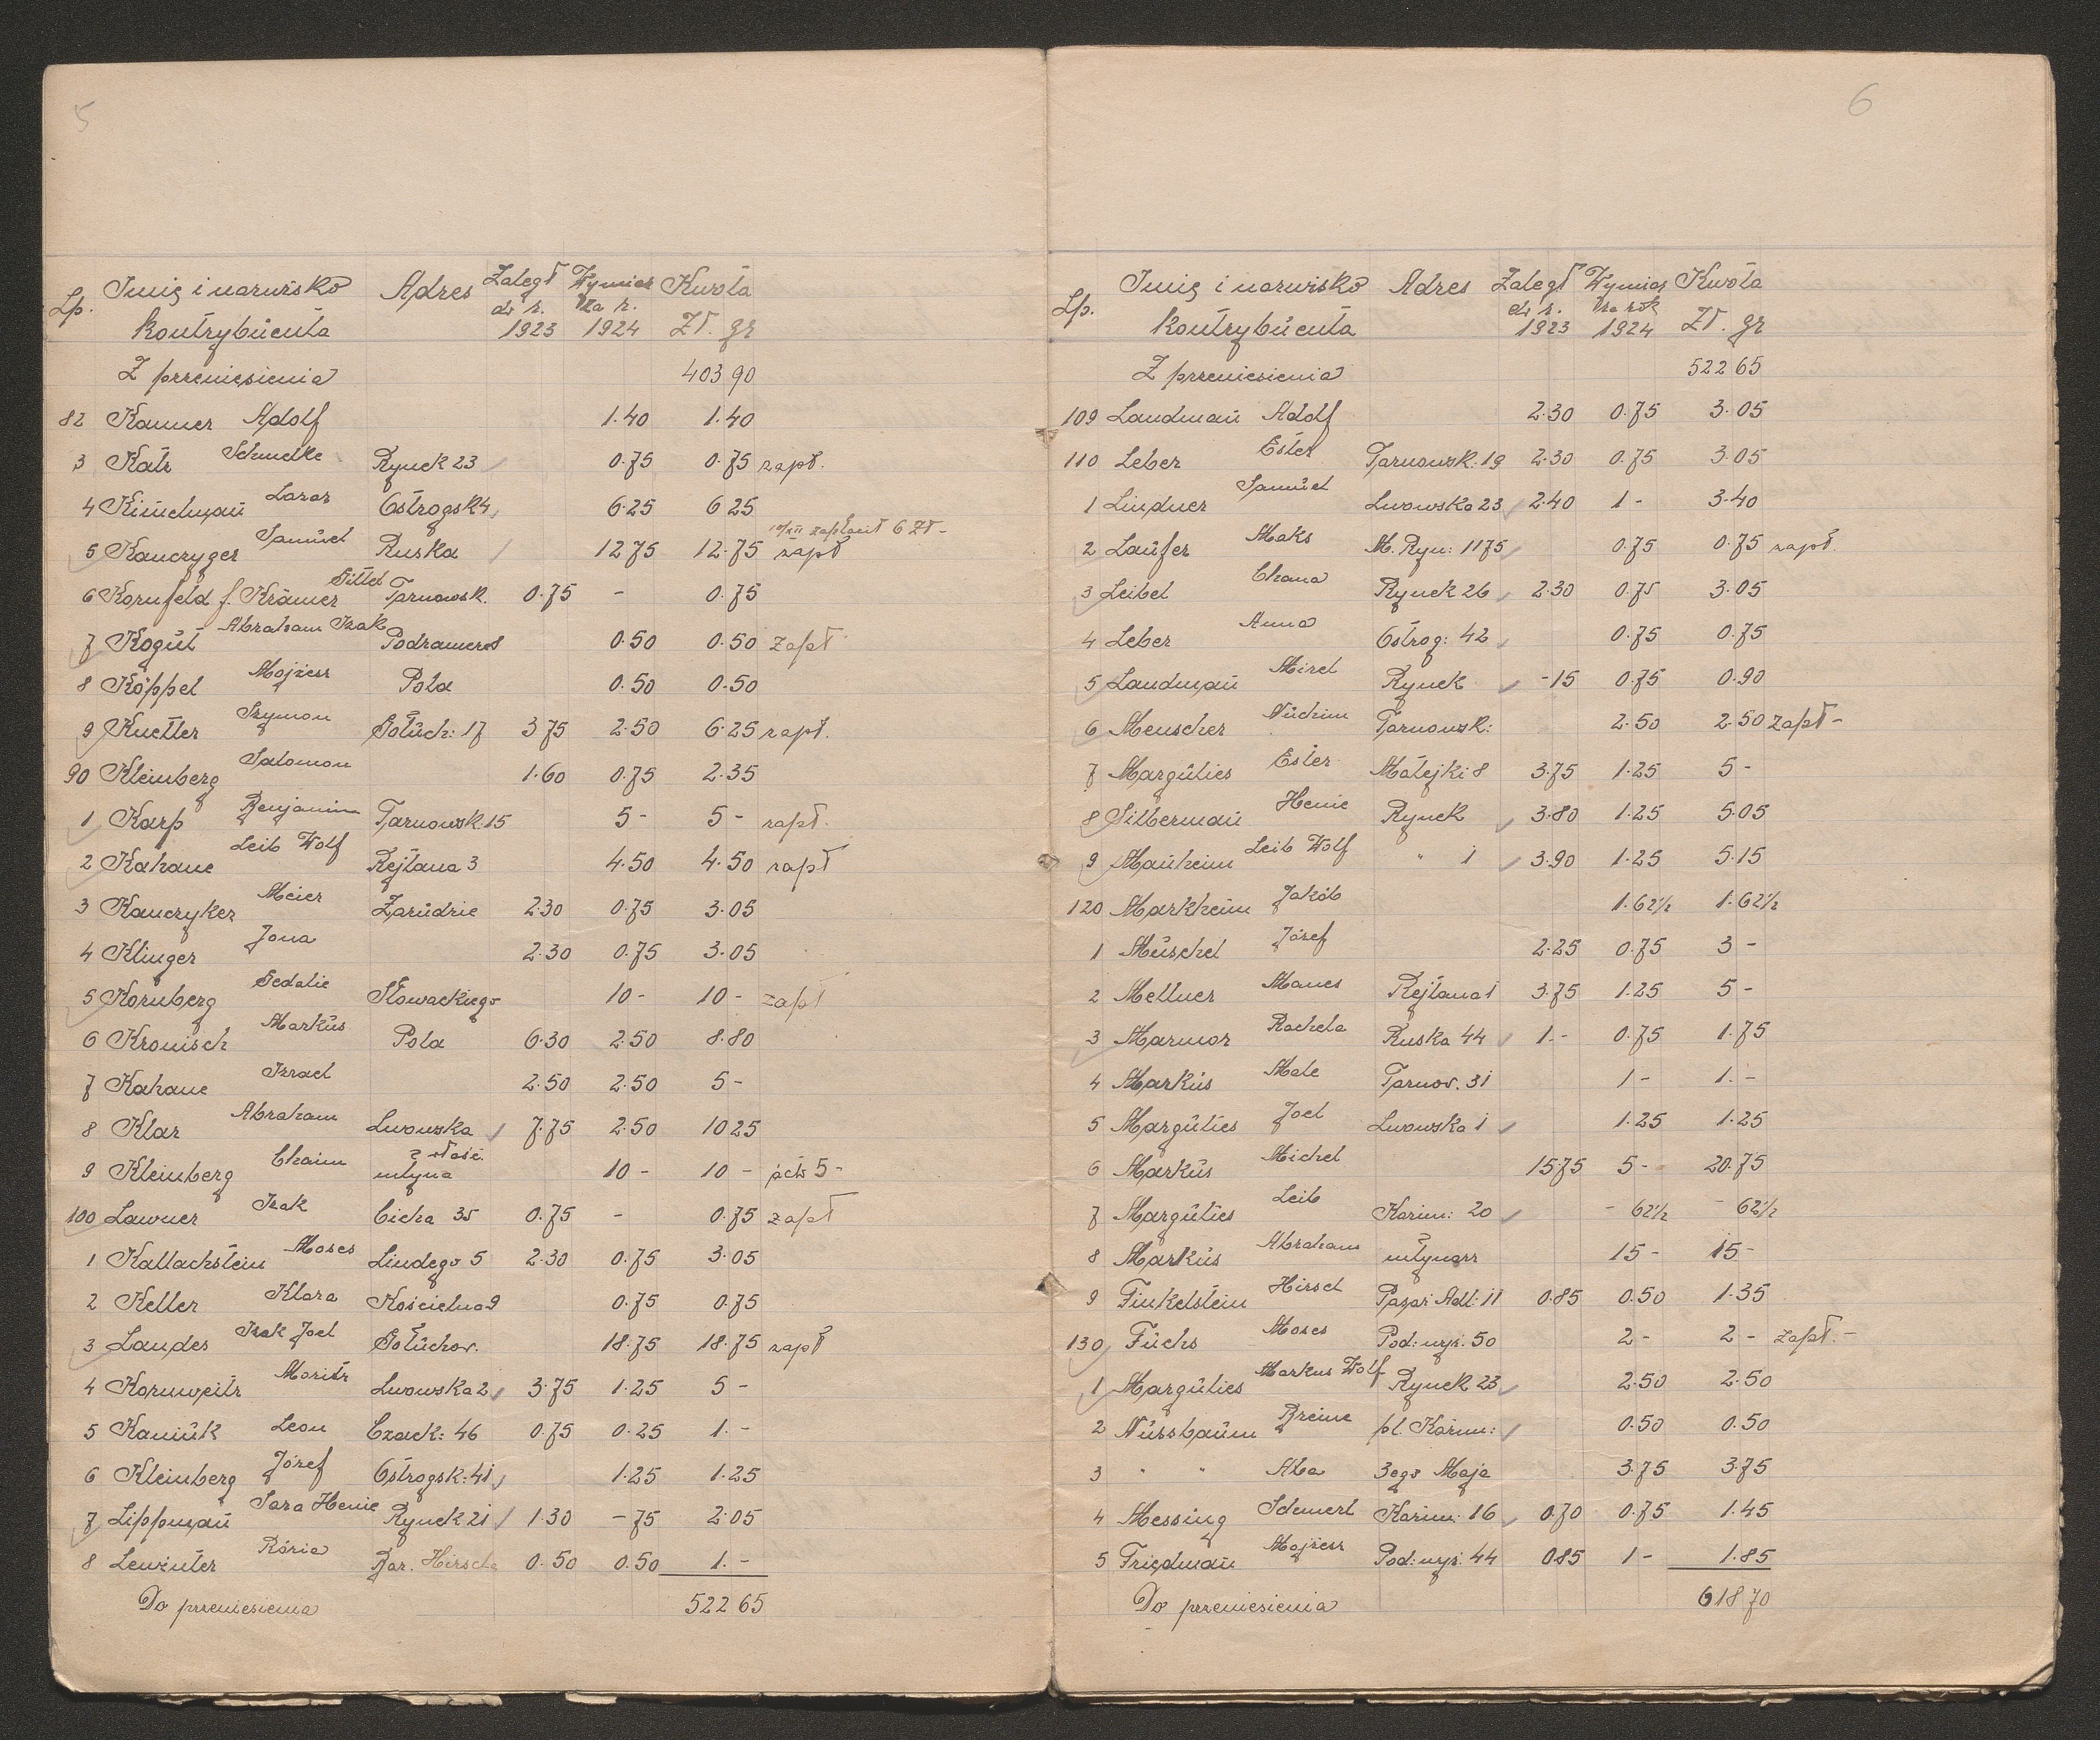 5
Lp. Imię i nazwisko kontrybuenta Adres Zaległ dr r. 1923 Wymiar za r. 1924 Kwota Zł. gr
Z przeniesienia 403 90
82 Kanner Adolf 1.40 1.40
3 Katz Schmelke Rynek 23 0.75 0.75 zapł.
4 Kindman Lazar Ostrogsk 4 6.25 6 25
10/XII zapłacił 6 Zł -
5 Kanczyger Samuel Ruska 12 75 12.75 zapł
6 Kornfeld f. Krämer Gittel Tarnowsk. 0.75 - 0.75
7 Kogut Abraham Izak Podzamcze 8 0.50 0.50 zapł
8 Köppel Mojżesz Pola 0.50 0.50
9 Knetter Szymon Gołuch: 17 3 75 2.50 6.25 zapł.
90 Kleinberg Salomon 1.60 0.75 2.35
1 Karp Benjamin Tarnowsk. 15 5 - 5 - zapł.
2 Kahane Leib Wolf Rejtana 3 4.50 4.50 zapł
3 Kanczyker Meier Zarudzie 2.30 0.75 3.05
4 Klinger Jona 2.30 0.75 3.05
5 Kornberg Gedalie Słowackiego 10 - 10 - zapł
6 Kronisch Markus Pola 6.30 2.50 8.80
7 Kahane Izrael 2.50 2.50 5 -
8 Klar Abraham Lwowska 7.75 2.50 10 25
9 Kleinberg Chaim właśc. młyna 10 - 10 - 5 -
100 Lawner Izak Cicha 35 0.75 - 0.75 zapł
1 Kallachstein Moses Lindego 5 2.30 0.75 3.05
2 Keller Klara Kościelna 9 0.75 0.75
3 Landes Izak Joel Gołuchow. 18.75 18.75 zapł
4 Kornweitz Moritz Lwowska 2 3.75 1.25 5 -
5 Kaniuk Leon Czack: 46 0.75 0.25 1. -
6 Kleinberg Józef Ostrogsk: 41 1.25 1.25
7 Lippman Sara Henie Rynek 21 1.30 - 75 2.05
8 Lewinter Rózia Bar. Hirscha 0.50 0.50 1. -
Do przeniesienia 522 65
6
Lp. Imię i nazwisko kontrybuenta Adres Zaległ dr r. 1923 Wymiar na rok 1924 Kwota Zł. gr
Z przeniesienia 522 65
109 Landman Adolf 2.30 0.75 3.05
110 Leber Ester Tarnowsk. 19 2.30 0.75 3.05
1 Lindner Samuel Lwowska 23 2.40 1 - 3.40
2 Laufer Maks M. Ryn: 1175 0.75 0.75 zapł.
3 Leibel Chana Rynek 26 2.30 0.75 3.05
4 Leber Anna Ostrog: 42 0.75 0.75
5 Landman Mirel Rynek - 15 0.75 0.90
6 Menscher Nuchim Tarnowsk: 2.50 2.50 zapł -
7 Margulies Ester Matejki 8 3.75 1.25 5 -
8 Silberman Henie Rynek 3.80 1.25 5.05
9 Manheim Leib Wolf " 1 3.90 1.25 5.15
120 Markheim Jakób 1.62½ 1.62½
1 Müschel Józef 2.25 0.75 3 -
2 Mellner Manes Rejtana 1 3.75 1.25 5 -
3 Marmor Rachela Ruska 44 1. - 0.75 1.75
4 Markus Male Tarnow. 31 1 - 1. -
5 Margulies Joel Lwowska 1 1.25 1.25
6 Markus Michel 15 75 5 - 20.75
7 Margulies Leib Kazim: 20 - 62½ - 62½
8 Markus Abraham młynarz 15 - 15 -
9 Finkelstein Hirsch Adl: 11 0.85 0.50 1.35
130 Fuchs Moses Pod: wyż. 50 2 - 2 - zapł. -
1 Margulies Markus Wolf Rynek 23 2.50 2.50
2 Nussbaum Breine pl. Kazim: 0.50 0.50
3 " " Aba 3ego Maja 3.75 3.75
4 Messing Schmerl Kazim: 16 0.70 0.75 1.45
5 Friedman Mojżesz Pod: wyż. 44 0.85 1 - 1.85
Do przeniesienia 618 70